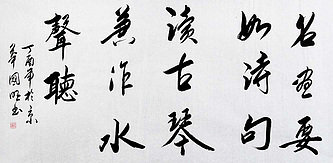 名画要
如诗句
读古琴
兼作水
聲聽
丁酉年於京
國书